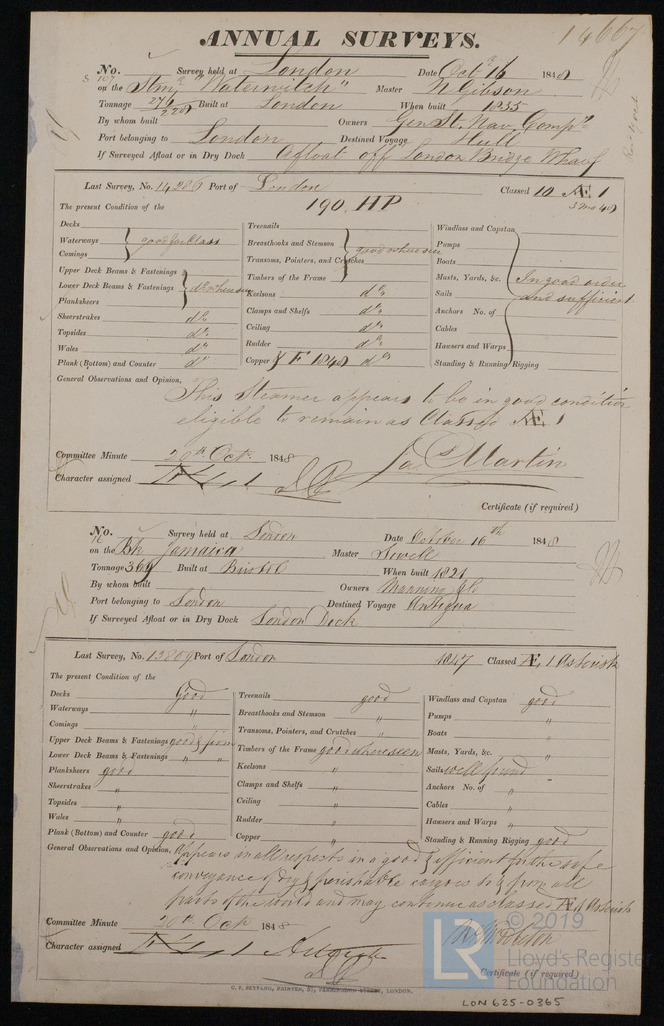 14667
ANNUAL SURVEYS.
No. Survey held at London Date Octr 16 1848
on the Stmr "Waterwitch" Master N Gibson
Tonnage 276/220 Built at London When built 1835
By whom built Owners Genl St. Nav. Compy
Port belonging to London Destined Voyage Hull
If Surveyed Afloat or in Dry Dock Afloat off London Bridge Wharf
Last Survey, No. 14286 Port of London Classed 10 Æ 1
The present Condition of the 190 HP
Decks
Waterways good for Class
Comings
Upper Deck Beams & Fastenings
Lower Deck Beams & Fastenings do where seen
Planksheers
Sheerstrakes do
Topsides do
Wales do
Plank (Bottom) and Counter do
Treenails
Breasthooks and Stemson good where seen
Transoms, Pointers, and Crutches
Timbers of the Frame
Keelsons do
Clamps and Shelfs do
Ceiling do
Rudder do
Copper F 1848 do
Windlass and Capstan
Pumps
Boats
Masts, Yards, &c. In good order
Sails and sufficient
Anchors No. of
Cables
Hawsers and Warps
Standing & Running Rigging
General Observations and Opinion,
This Steamer appears to be in good condition
eligible to remain as Classed Æ 1
Committee Minute 20th Octr. 1848
Jas Martin
Character assigned
Certificate (if required)
No. Survey held at London Date October 16th 1848
on the Bk Jamaica Master Sewell
Tonnage 369 Built at Bristol When built 1821
By whom built Owners Manning & Co
Port belonging to London Destined Voyage Antigua
If Surveyed Afloat or in Dry Dock London Dock
Last Survey, No. 13809 Port of London 1847 Classed Æ, 1 Asterisk
The present Condition of the
Decks Good
Waterways "
Comings "
Upper Deck Beams & Fastenings good & firm
Lower Deck Beams & Fastenings " "
Planksheers good
Sheerstrakes "
Topsides "
Wales "
Plank (Bottom) and Counter good
Treenails good
Breasthooks and Stemson "
Transoms, Pointers, and Crutches "
Timbers of the Frame good where seen
Keelsons "
Clamps and Shelfs "
Ceiling "
Rudder "
Copper "
Windlass and Capstan good
Pumps "
Boats "
Masts, Yards, &c. "
Sails well found
Anchors No. of "
Cables "
Hawsers and Warps "
Standing & Running Rigging good
General Observations and Opinion, Appears in all respects in a good & efficient for the safe
conveyance of dry & perishable cargoes to & from all
parts of the world and may continue as classed Æ 1 Asterisk
Committee Minute 20th Octr 1848
Character assigned
Certificate (if required)
© 2019
LR
Lloyd's Register
Foundation
LON 625-0365